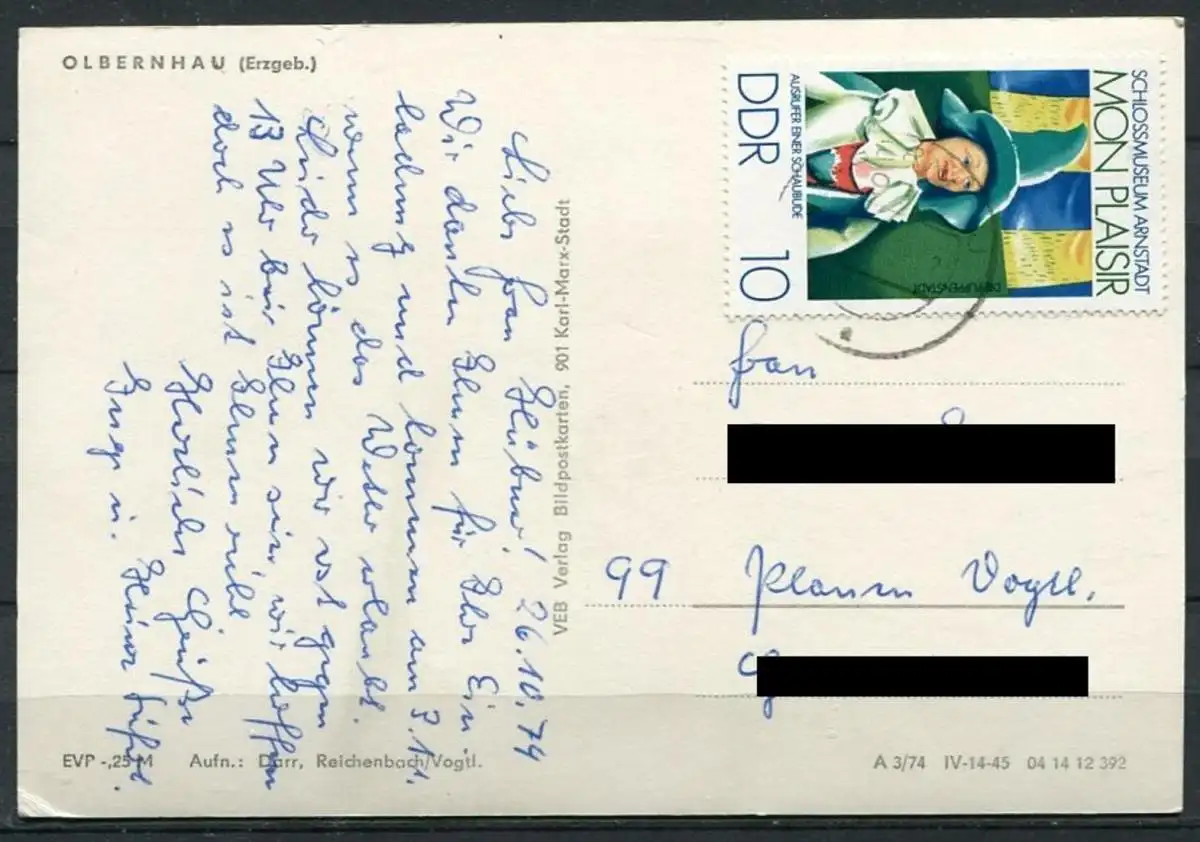 OLBERNHAU (Erzgeb.)
Liebe Frau Hübner! 26.10.74
Wir danken Ihnen für Ihre Ein-
ladung und kommen am 3.11.
wenn es das Wetter erlaubt.
Leider können wir erst gegen
13 Uhr bei Ihnen sein, wir hoffen
doch es ist Ihnen recht.
Herzliche Grüße
Inge u. Heiner
VEB Verlag Bildpostkarten, 901 Karl-Marx-Stadt
SCHLOSSMUSEUM ARNSTADT
MON PLAISIR
DIE PUPPENSTADT
AUSRUFER EINER SCHAUBUDE
DDR 10
Frau
99 Plauen Vogtl.
EVP -,25 M Aufn.: Darr, Reichenbach/Vogtl.
A 3/74 IV-14-45 04 14 12 392